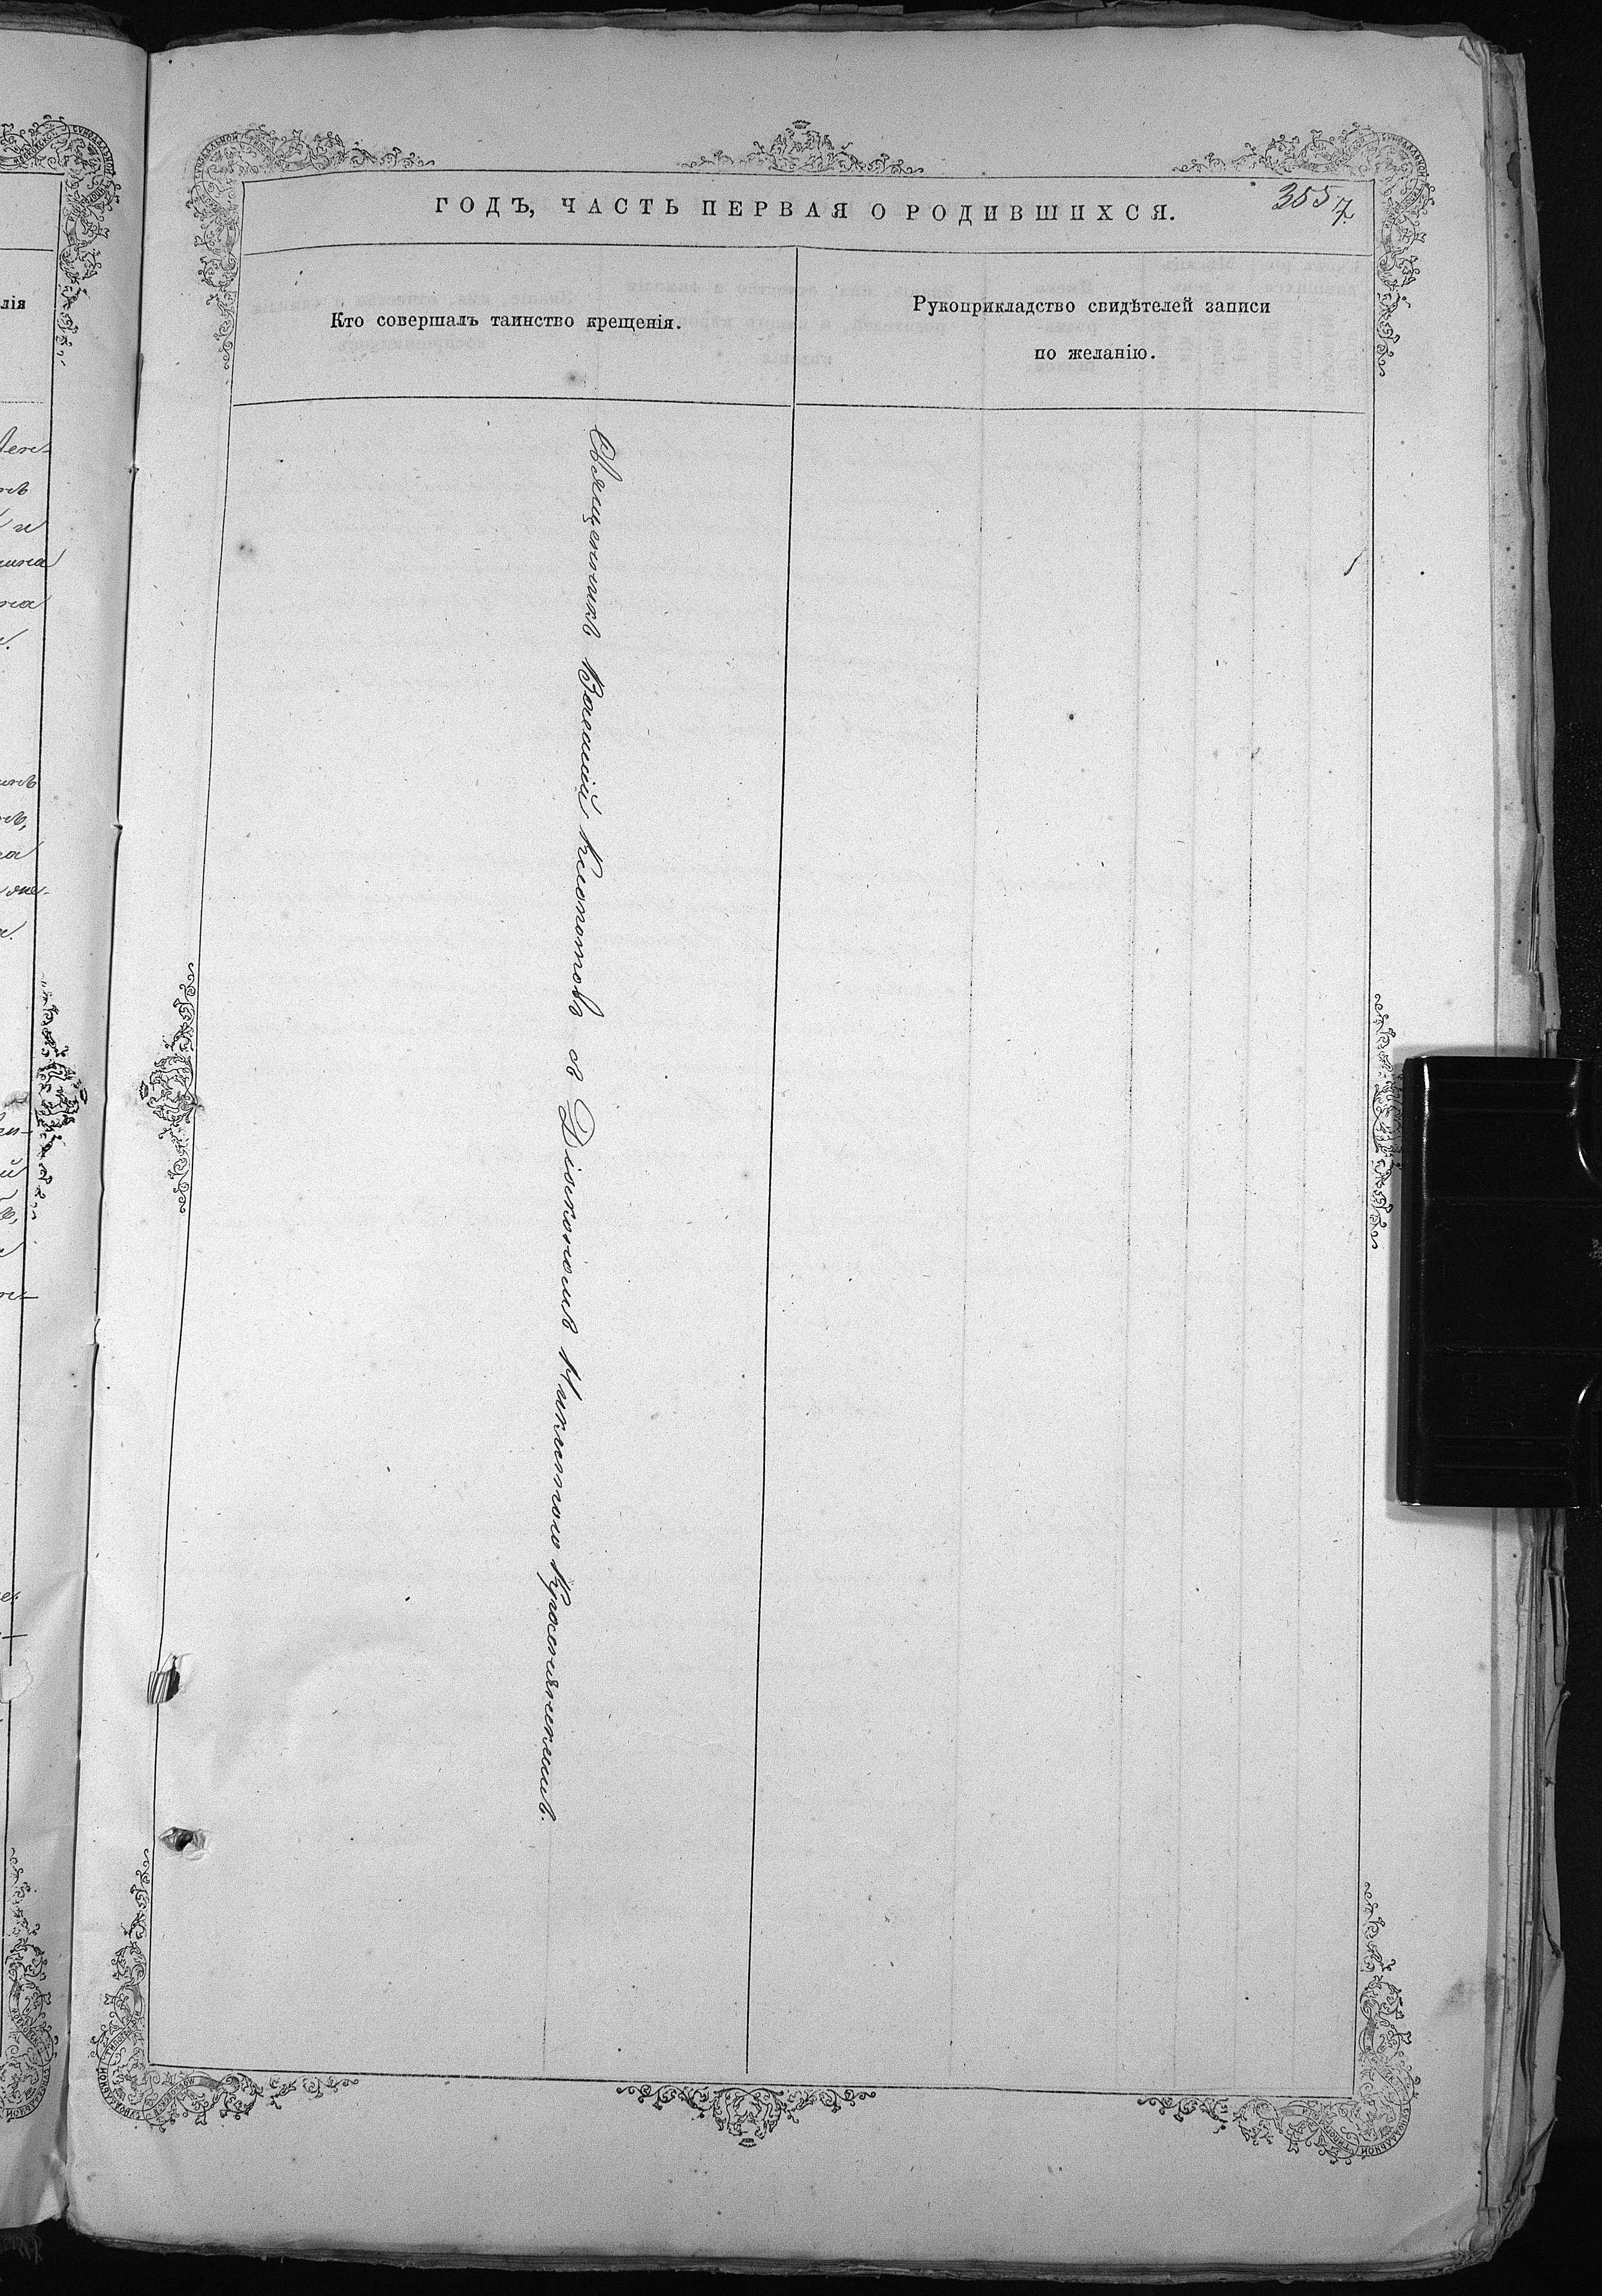 ГОДЪ, ЧАСТЬ ПЕРВАЯ О РОДИВШИХСЯ.
355
7.
Кто совершалъ таинство крещенія.
Рукоприкладство свидѣтелей записи
по желанію.
Священникъ Василій Клопотовъ съ Діакономъ Никитою